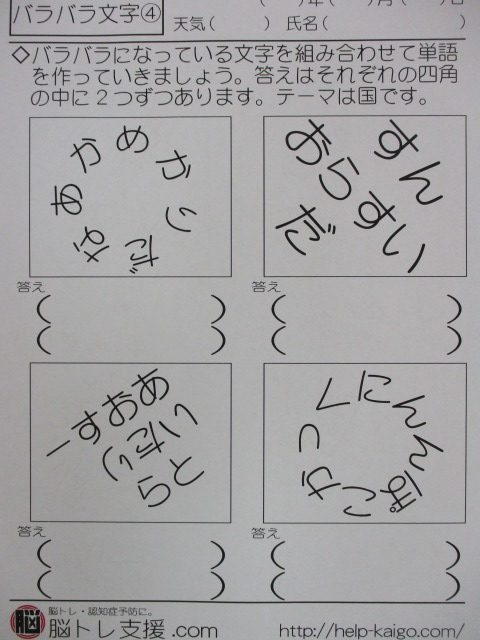 バラバラ文字④
天気(　　) 氏名(　　　　)
◇バラバラになっている文字を組み合わせて単語
を作っていきましょう。答えはそれぞれの四角
の中に２つずつあります。テーマは国です。
かめかりだなあ
おらすい
すんだ
答え
答え
あおすー
いたり
とら
くにんんぽこかっ
答え
答え
脳 脳トレ・認知症予防に。
脳トレ支援.com
http://help-kaigo.com/